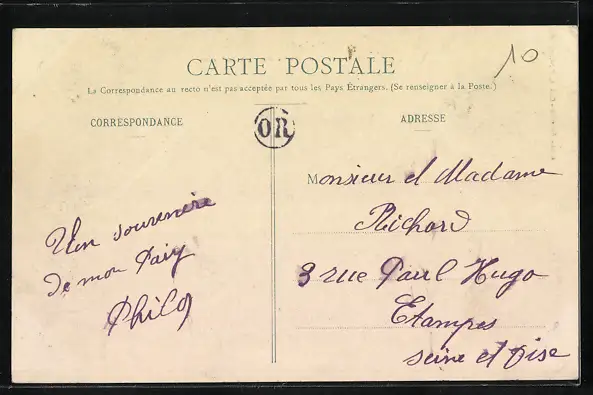 10
CARTE POSTALE
La Correspondance au recto n'est pas acceptée par tous les Pays Étrangers. (Se renseigner à la Poste.)
CORRESPONDANCE
OR
ADRESSE
Monsieur et Madame
Richard
3 rue Paul Hugo
Etampes
seine et oise
Un souvenire
de mon Paiy